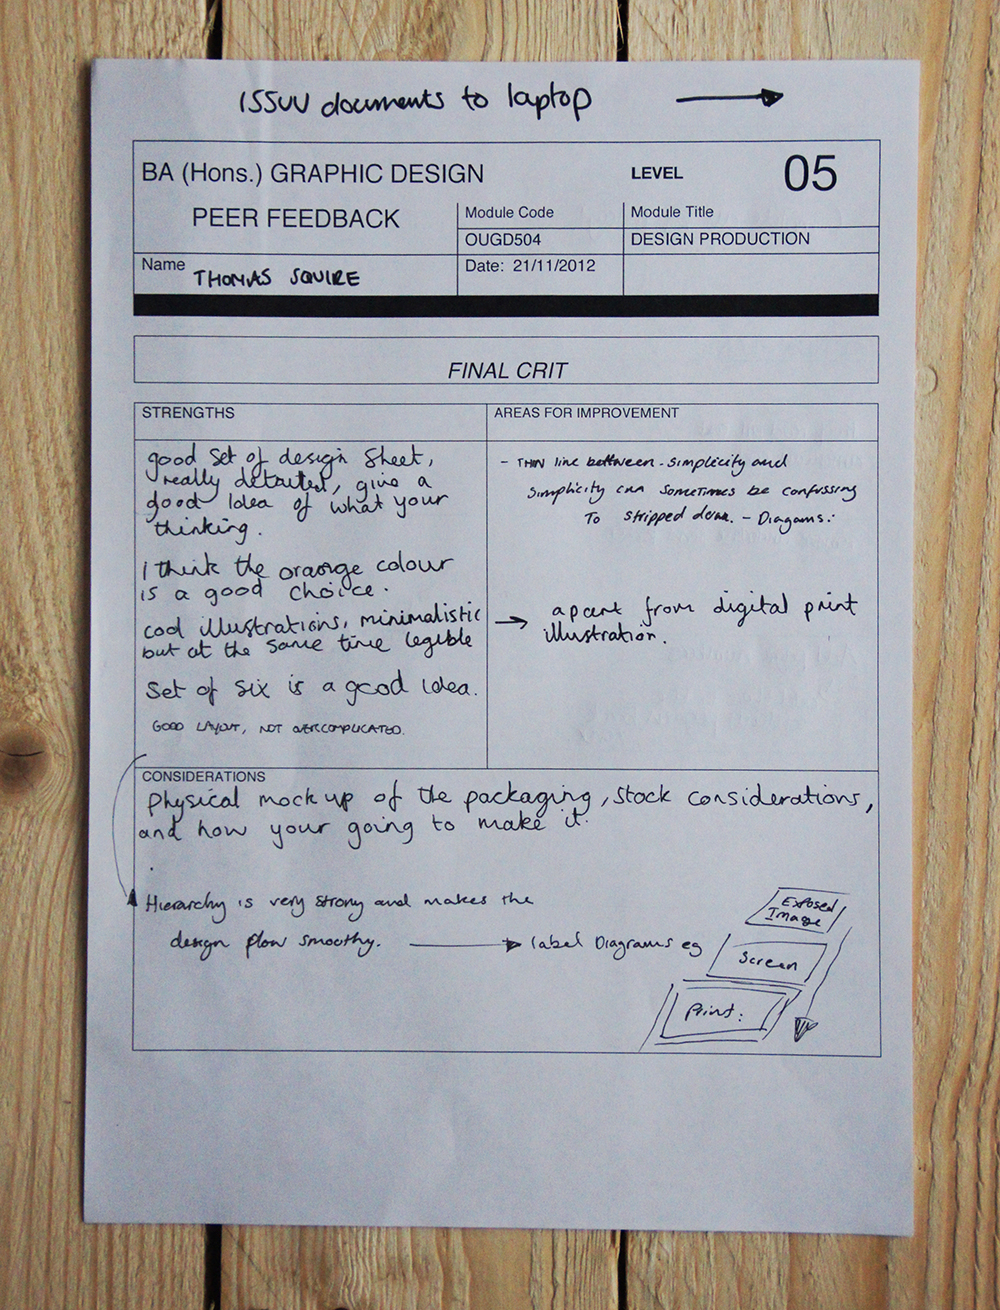 ISSUU documents to laptop
BA (Hons.) GRAPHIC DESIGN
LEVEL 05
PEER FEEDBACK
Module Code
Module Title
OUGD504
DESIGN PRODUCTION
Name THOMAS SQUIRE
Date: 21/11/2012
FINAL CRIT
STRENGTHS
good set of design sheet,
really detailed, give a
good idea of what your
thinking.
I think the orange colour
is a good choice.
cool illustrations, minimalistic
but at the same time legible
Set of six is a good idea.
GOOD LAYOUT, NOT OVERCOMPLICATED.
AREAS FOR IMPROVEMENT
- THIN line between simplicity and
simplicity can sometimes be confussing
To stripped down. - Diagams:
apart from digital print
illustration.
CONSIDERATIONS
Physical mock up of the packaging, stock considerations,
and how your going to make it.
Hierarchy is very strong and makes the
design flow smoothy.
label Diagrams eg
Exposed
Image
Screen
Print: